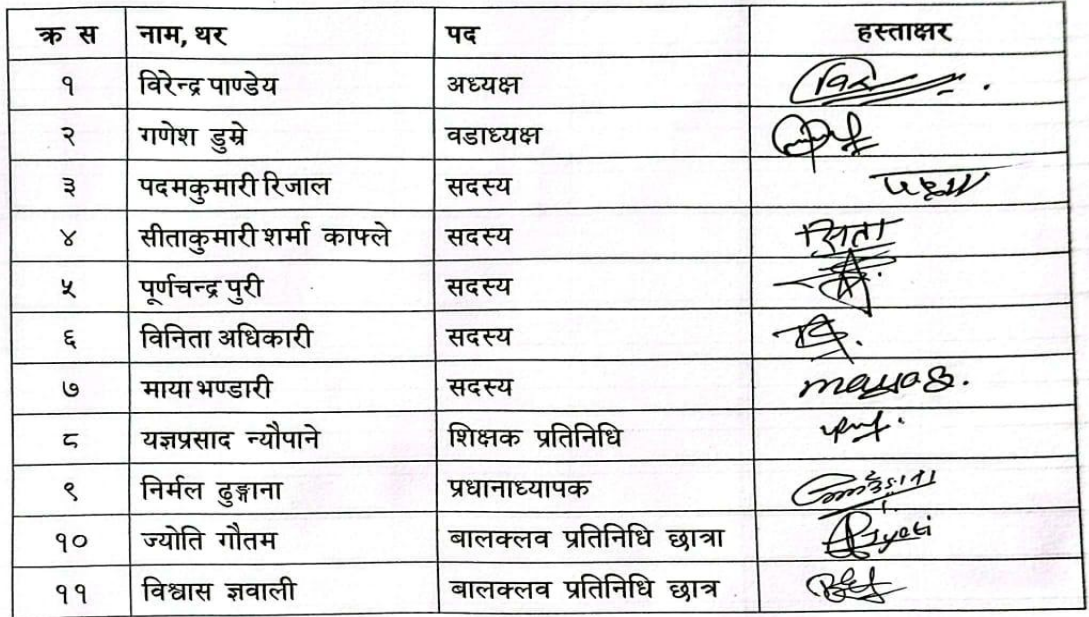 क्र स नाम, थर पद हस्ताक्षर
१ विरेन्द्र पाण्डेय अध्यक्ष
२ गणेश डुम्रे वडाध्यक्ष
३ पदमकुमारी रिजाल सदस्य
४ सीताकुमारी शर्मा काफ्ले सदस्य सिता
५ पूर्णचन्द्र पुरी सदस्य
६ विनिता अधिकारी सदस्य
७ माया भण्डारी सदस्य
८ यज्ञप्रसाद न्यौपाने शिक्षक प्रतिनिधि
९ निर्मल ढुङ्गाना प्रधानाध्यापक
१० ज्योति गौतम बालक्लव प्रतिनिधि छात्रा Jyoti
११ विश्वास ज्ञवाली बालक्लव प्रतिनिधि छात्र